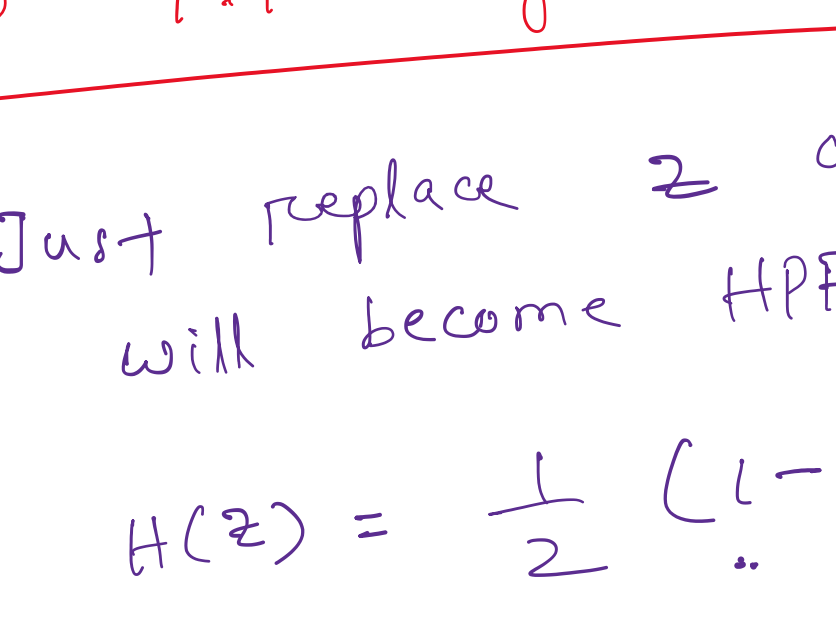 Just replace z
will become HPF
H(z) = 1/2 (1 -